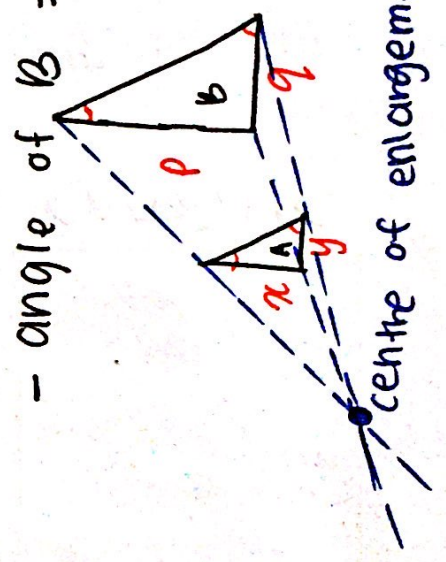 - angle of B =
B
p
q
A
x
y
centre of enlargem